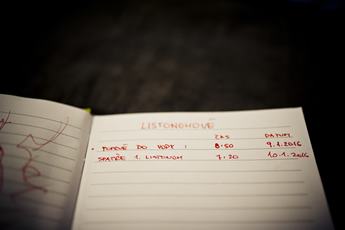 LISTONOHOVÉ
ČAS DATUM
DO VODY : 8:50 9.1.2016
SPATŘE 1. LISTONOH 7:20 10.1.2016